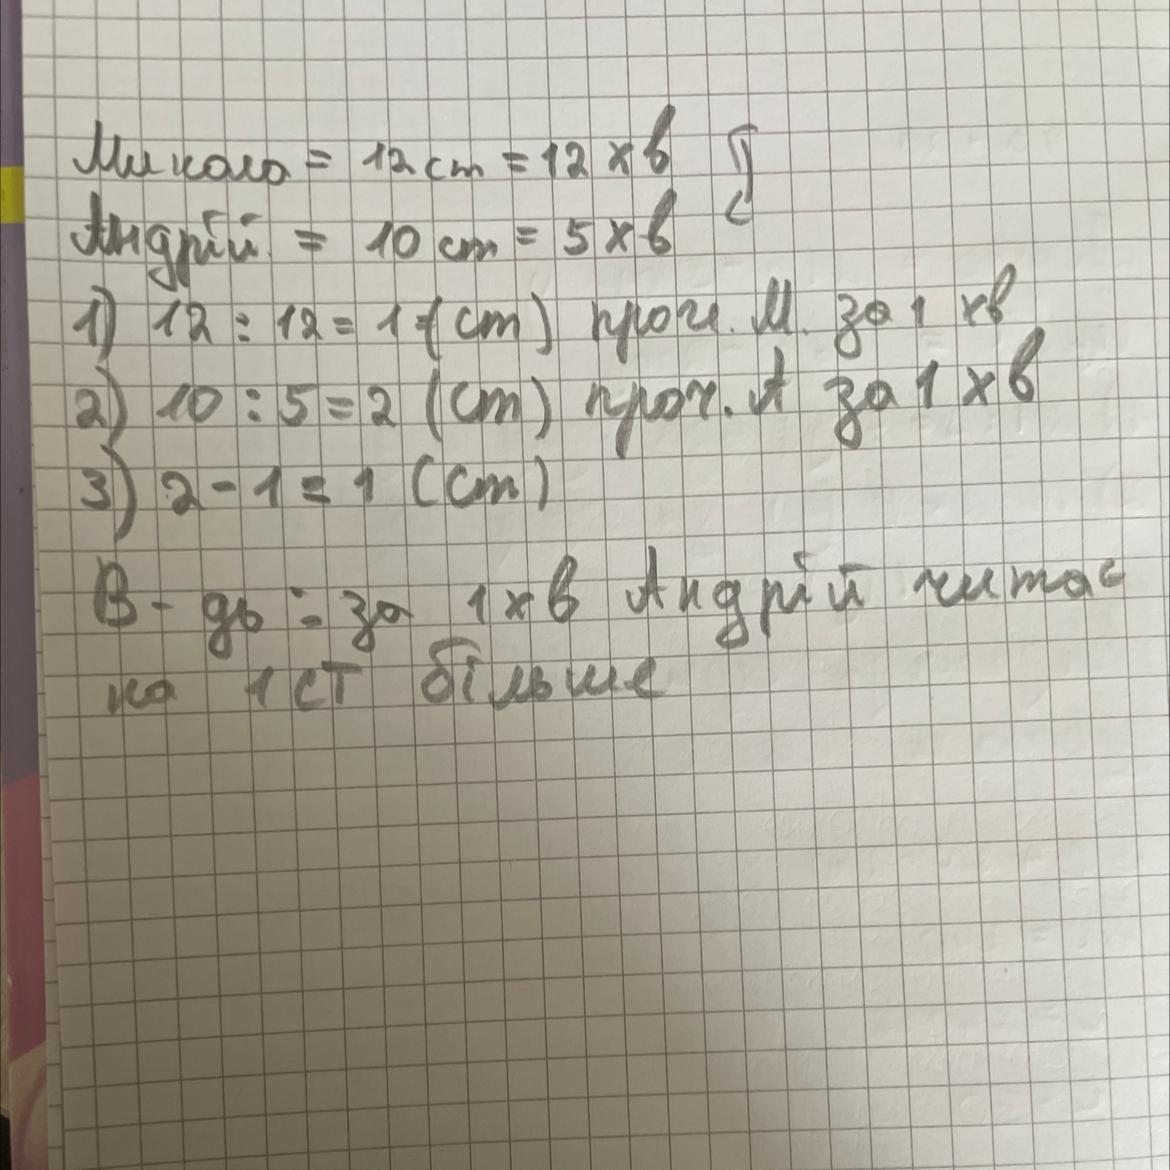 Микола = 12 ст = 12 хв
Андрій = 10 ст = 5 хв
1) 12 : 12 = 1 (ст) проч. М. за 1 хв
2) 10 : 5 = 2 (ст) проч. А за 1 хв
3) 2 - 1 = 1 (ст)
В - дь : за 1 хв Андрій читає
на 1 ст більше